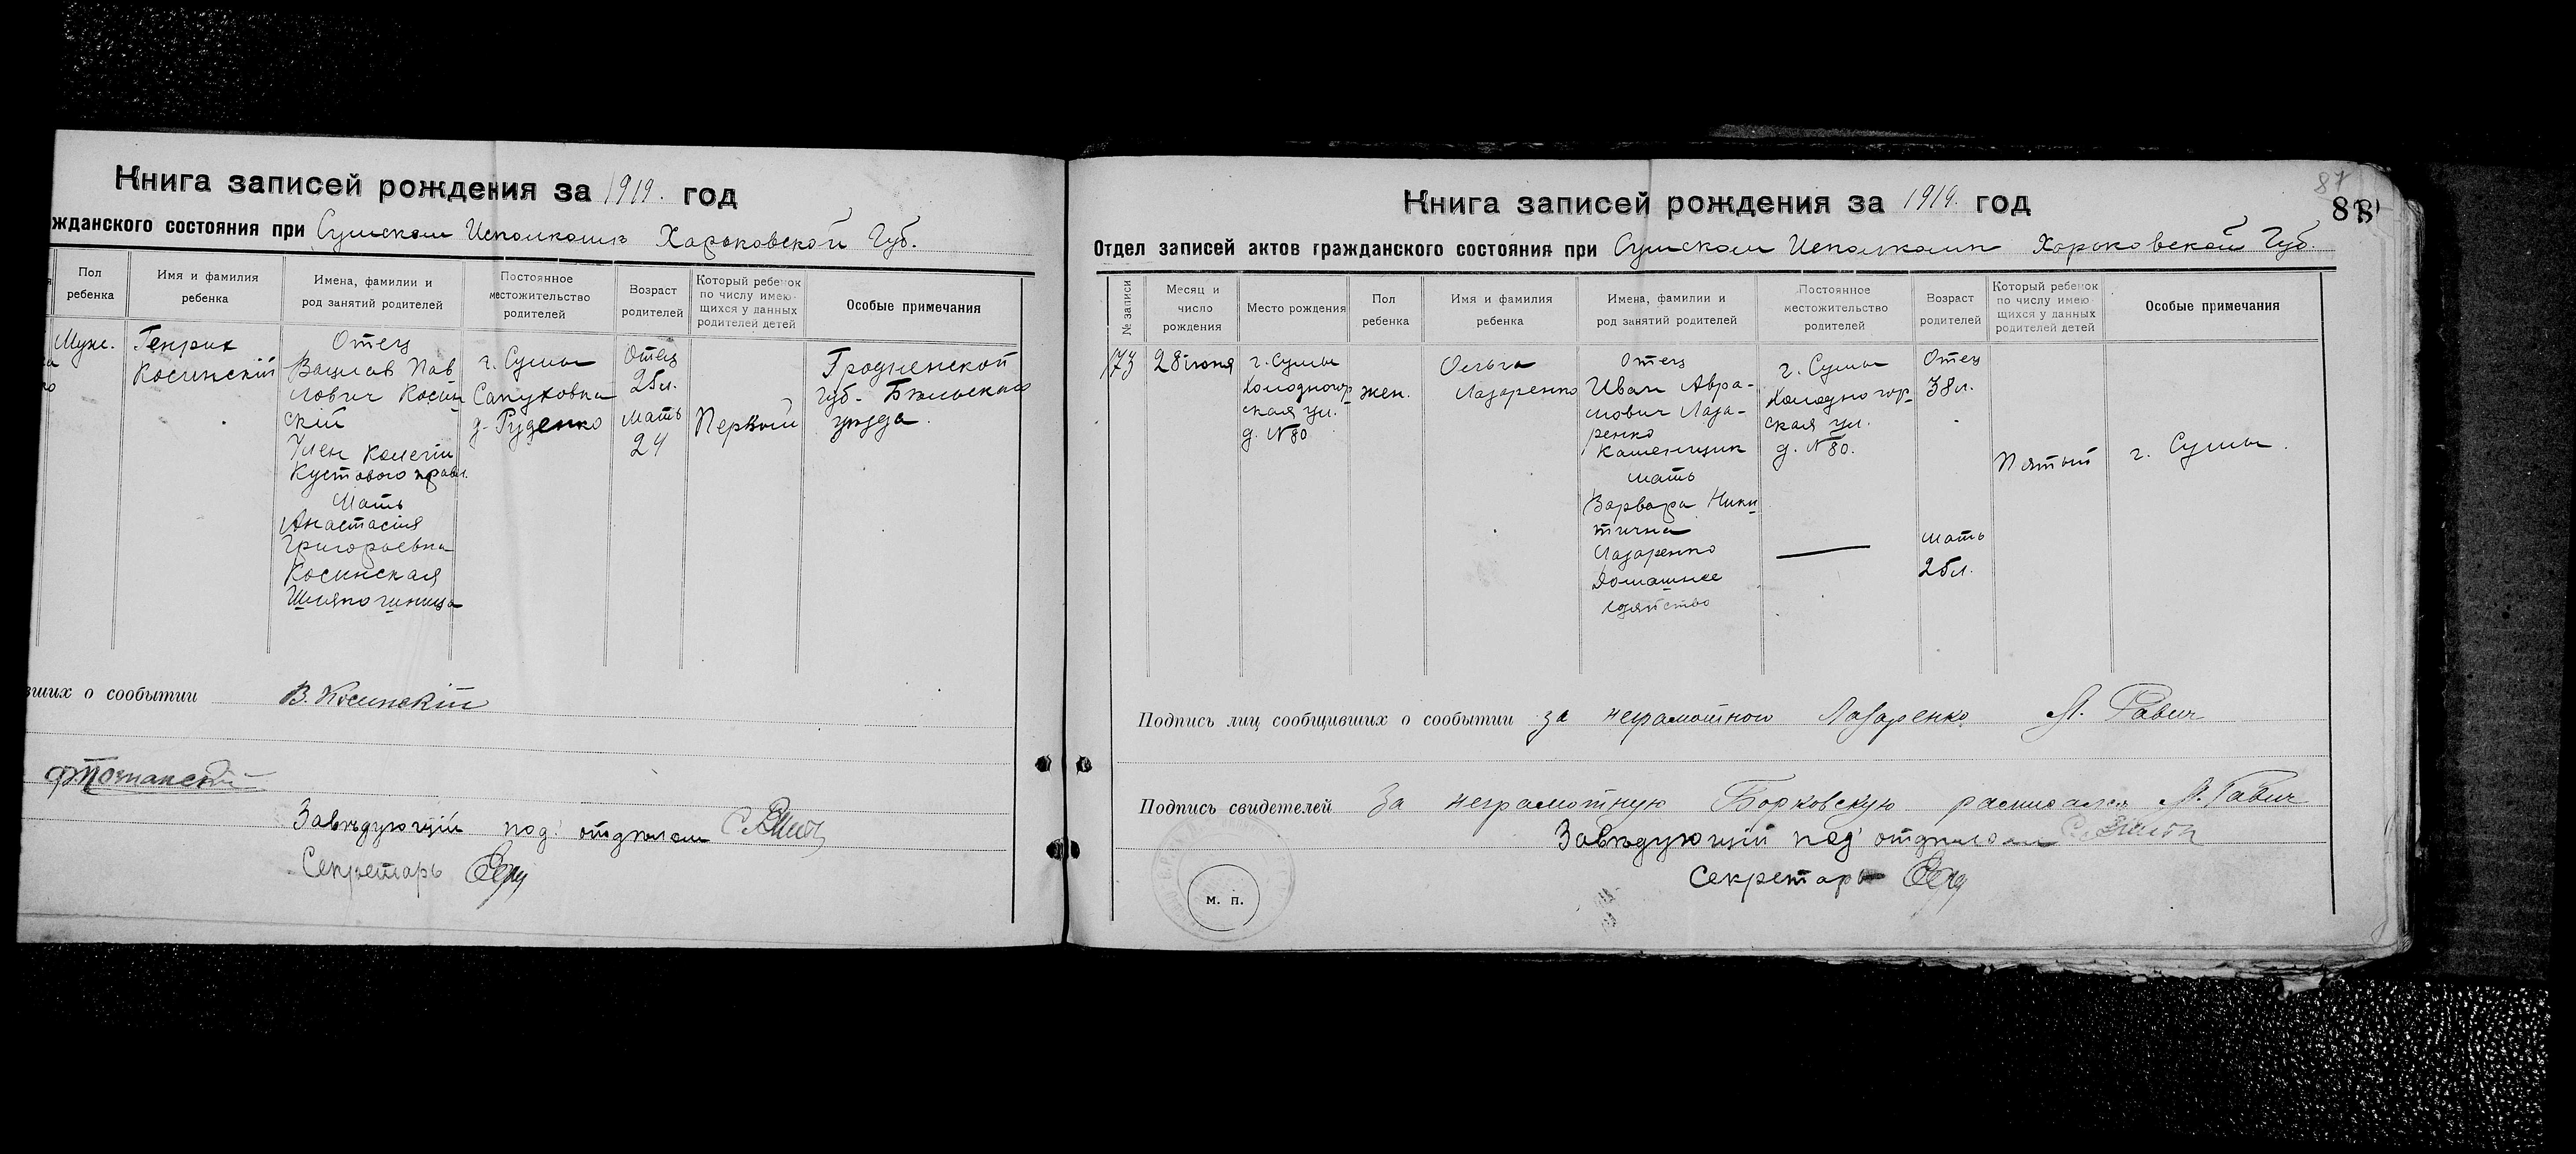 Книга записей рождения за 1919. год
жданского состояния при Сумском Исполкоме Харьковской Губ.
Пол ребенка
Имя и фамилия ребенка
Имена, фамилии и род занятий родителей
Постоянное местожительство родителей
Возраст родителей
Который ребенок по числу имеющихся у данных родителей детей
Особые примечания
Муж.
Генрик
Косинскій
Отец
Вацлав Пав
лович Косин
скій
Член Колегіи
Кустового правл.
Мать
Анастасія
Григорьевна
Косинская
Шляпочница
г. Сумы
Сапуховка
д. Руденко
Отец
25л.
мать
24
Первый
Гродненской
губ. Бѣльскаго
уѣзда.
вших о сообытии В. Косинскій
Завѣдующій под'отдѣлом
Секретарь
87
88
Книга записей рождения за 1919. год
Отдел записей актов гражданского состояния при Сумском Исполкоме Харьковской Губ.
№ записи
Месяц и число рождения
Место рождения
Пол ребенка
Имя и фамилия ребенка
Имена, фамилии и род занятий родителей
Постоянное местожительство родителей
Возраст родителей
Который ребенок по числу имеющихся у данных родителей детей
Особые примечания
173
28 іюня
г. Сумы
Холодногор
ская ул.
д. №80
жен.
Ольга
Лазаренко
Отец
Иван Авра-
мович Лаза-
ренко
Каменщик
мать
Варвара Ники
тична
Лазаренко
Домашнее
г. Сумы
Холодногор-
ская ул.
д. №80.
Отец
38л.
мать
25л.
Пятый
г. Сумы.
Подпись лиц сообщивших о сообытии за неграмотного Лазаренко М. Равич
Подпись свидетелей За неграмотную Борковскую расписалась М. Равич
Завѣдующій под'отдѣлом
Секретарь
м. п.